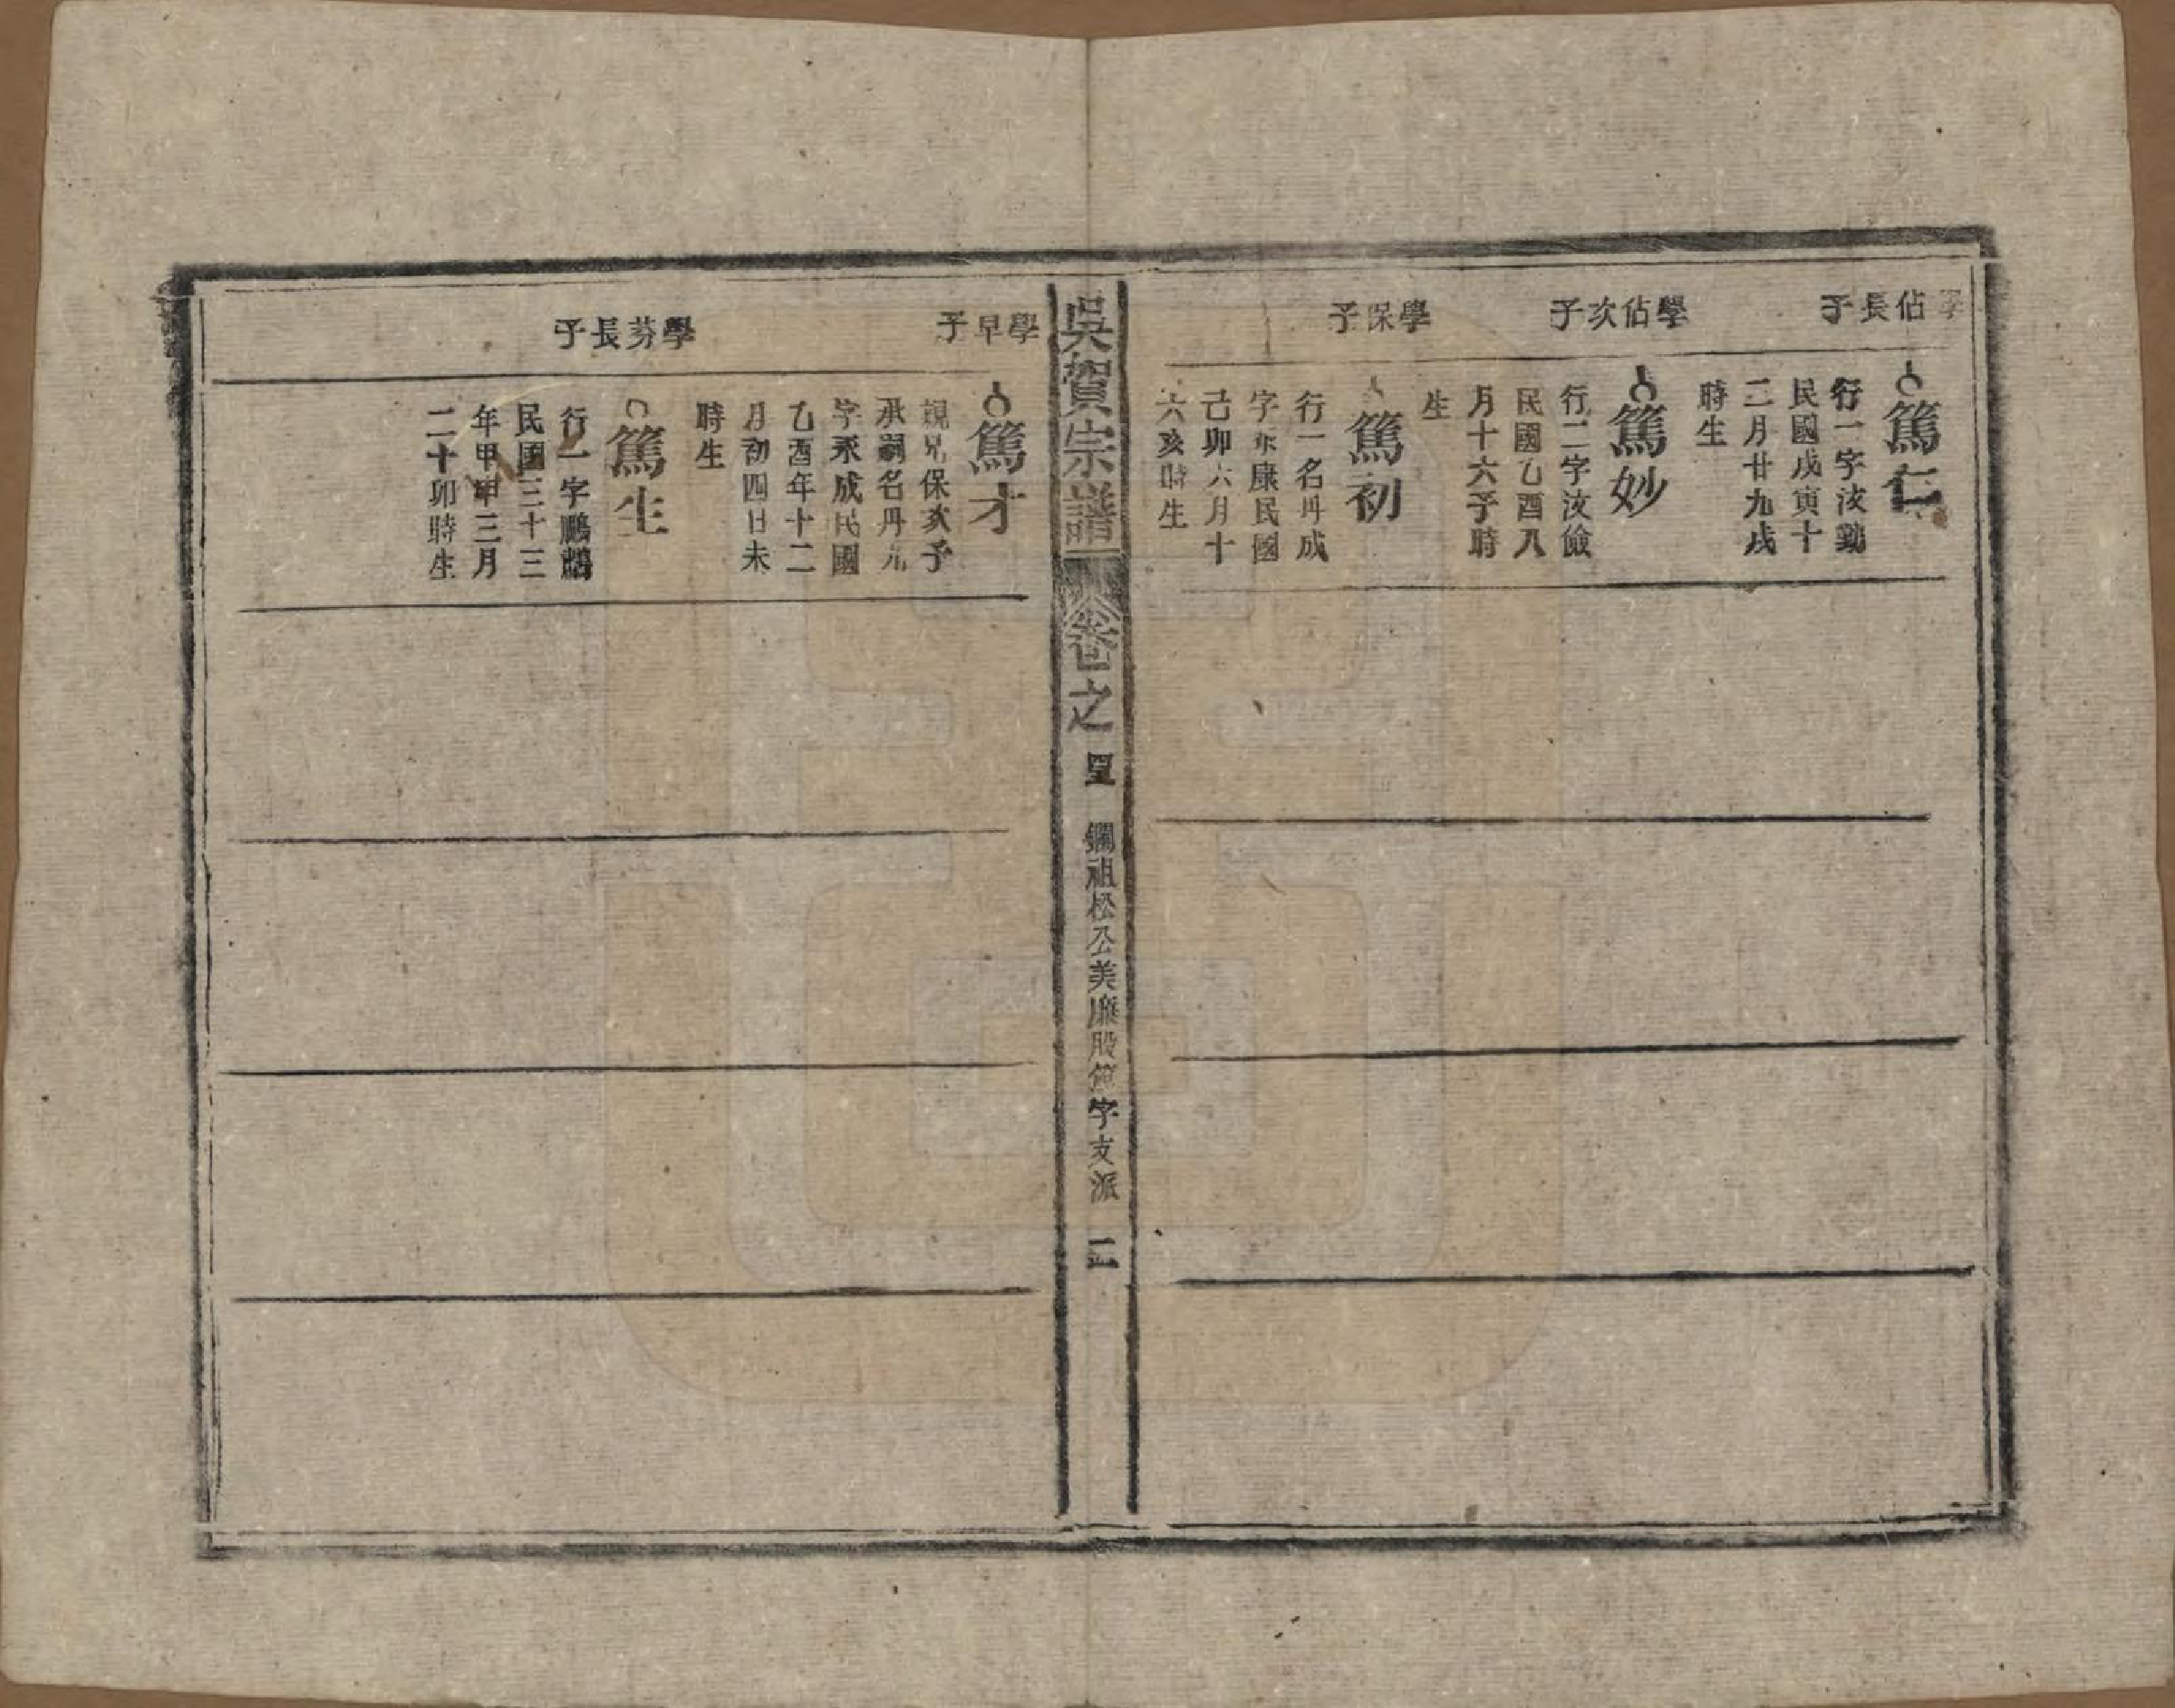 學佔長子
篤仁
行一字汝勤
民國戊寅十
二月廿九戌
時生
學佔次子
篤妙
行二字汝儉
民國乙酉八
月十六子時
生
學保子
篤初
行一名丹成
字永康民國
己卯六月十
六亥時生
吳賀宗譜
卷之 四
鐗祖松公美廉股 字支派 二
學早子
篤才
親兄保次子
承嗣名丹九
字永成民國
乙酉年十二
月初四日未
時生
學芬長子
篤生
行一字鵬麟
民國三十三
年甲申三月
二十卯時生